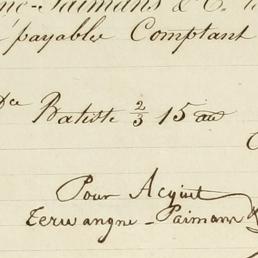 Paimans & C.
payable Comptant
Batiste 2/3 15 au
Pour Acquit
Terwangne-Paimans